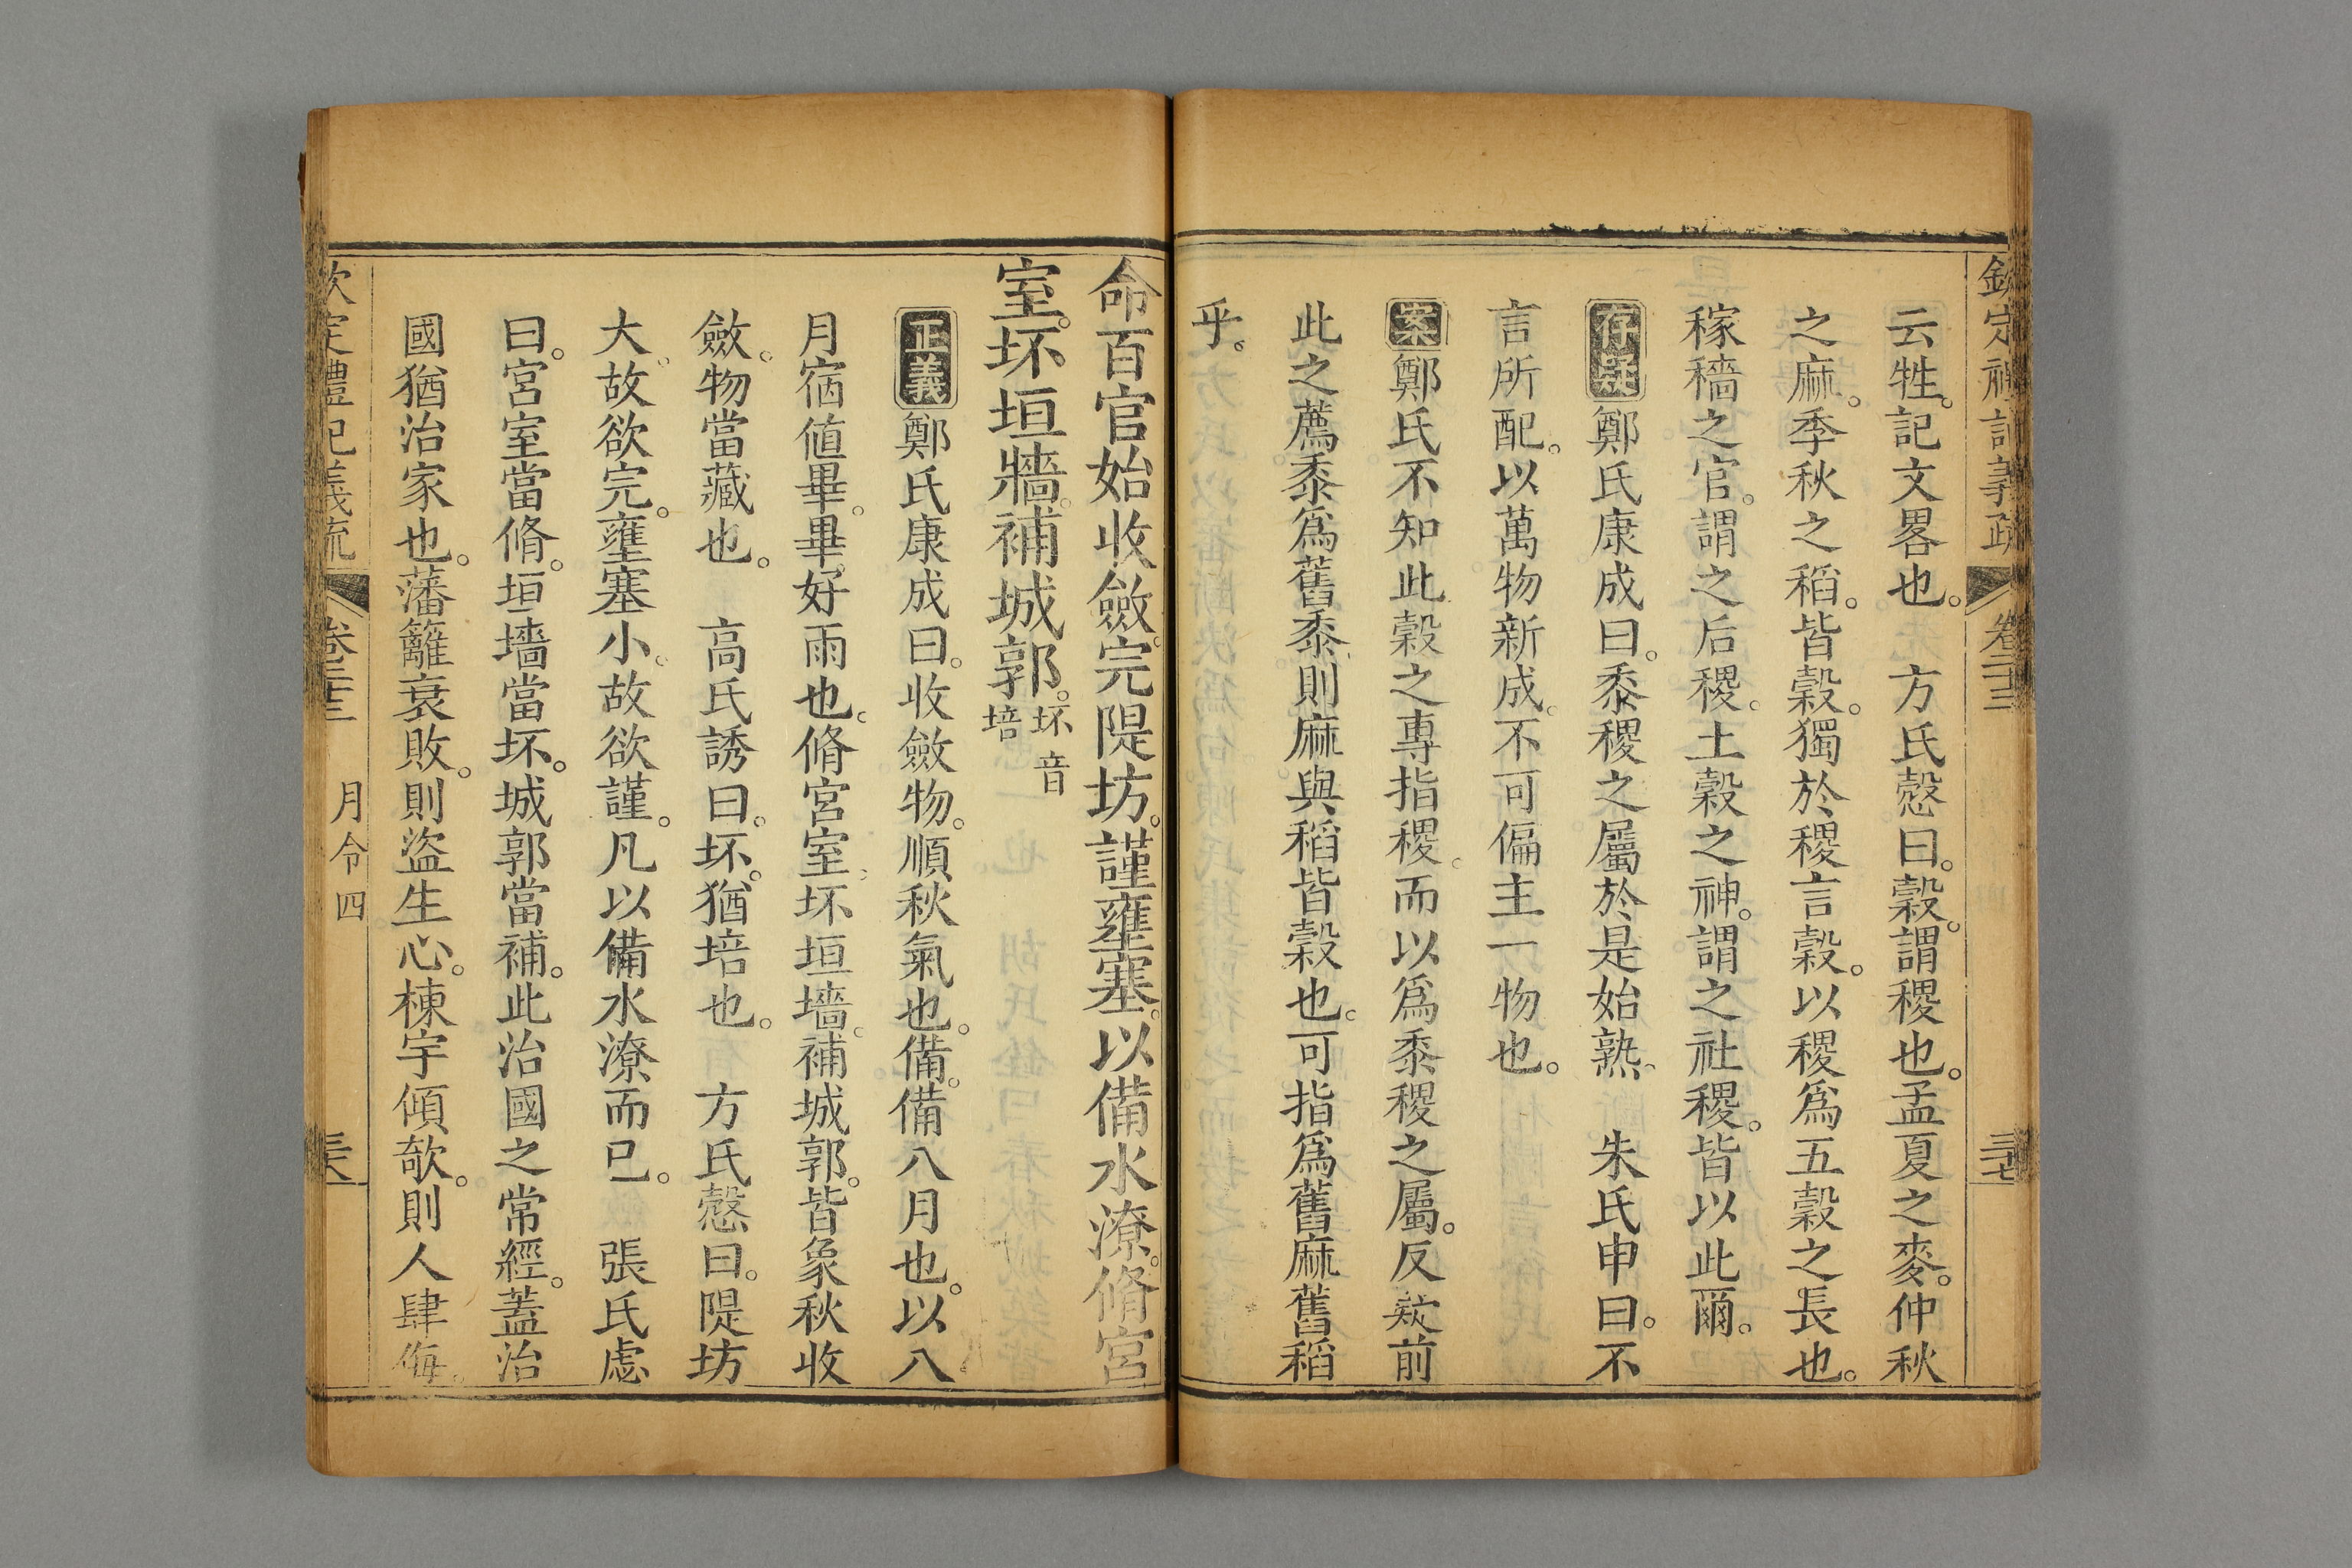 欽定禮記義疏 卷二十三 三十七
云牲。記文畧也。 方氏慤曰。穀。謂稷也。孟夏之麥。仲秋
之麻。季秋之稻。皆穀。獨於稷言穀。以稷爲五穀之長也。
稼穡之官。謂之后稷。土穀之神。謂之社稷。皆以此爾。
存疑 鄭氏康成曰。黍稷之屬於是始熟。 朱氏申曰。不
言所配。以萬物新成。不可偏主一物也。
案 鄭氏不知此穀之專指稷。而以爲黍稷之屬。反欵前
此之薦黍爲舊黍。則麻與稻皆穀也。可指爲舊麻舊稻
乎。
命百官始收斂。完隄坊。謹壅塞。以備水潦。脩宮
室。坏垣牆。補城郭。坏音
培
正義 鄭氏康成曰。收斂物。順秋氣也。備。備八月也。以八
月宿值畢。畢好雨也。脩宮室。坏垣墻。補城郭。皆象秋收
斂。物當藏也。 高氏誘曰。坏。猶培也。 方氏慤曰。隄坊
大。故欲完。壅塞小。故欲謹。凡以備水潦而已。 張氏慮
曰。宮室當脩。垣墻當坏。城郭當補。此治國之常經。蓋治
國猶治家也。藩籬衰敗。則盜生心。棟宇傾欹。則人肆侮。
欽定禮記義疏 卷二十三 月令四 三十八